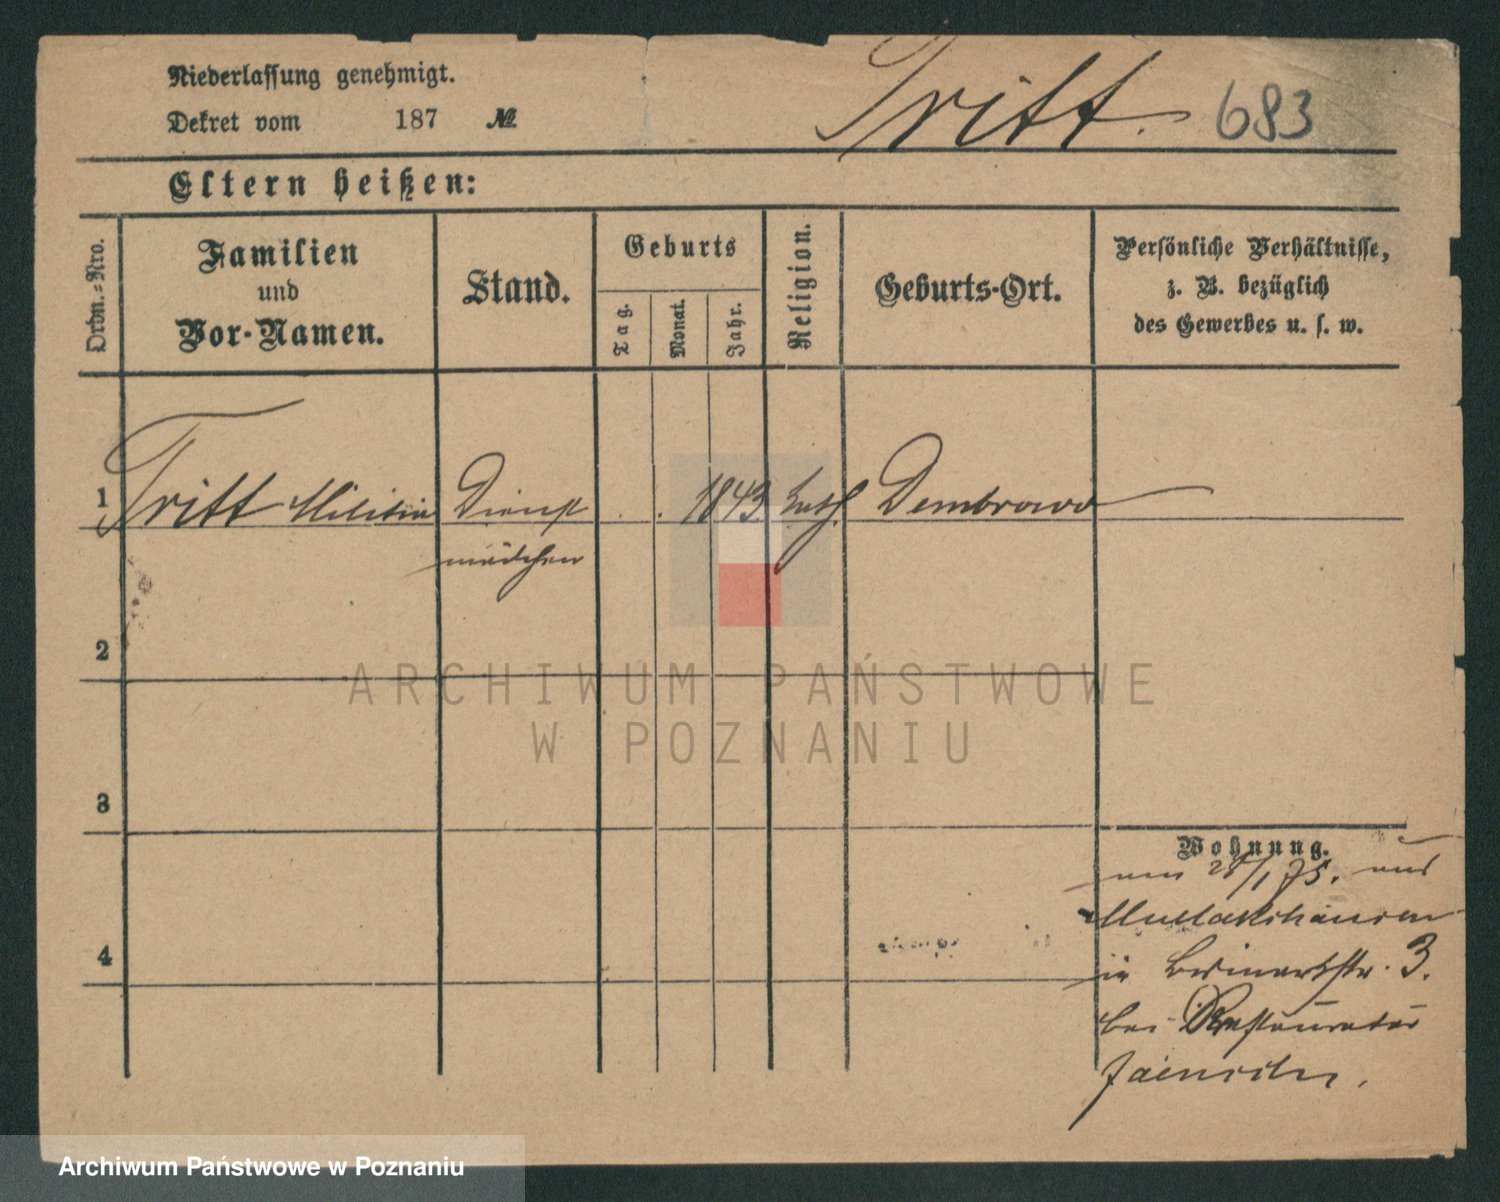 Niederlassung genehmigt.
Dekret vom 187 №
Tritt. 683
Eltern heißen:
Ordn.=Nro.
Familien
und
Vor-Namen.
Stand.
Geburts
Tag.
Monat.
Jahr.
Religion.
Geburts-Ort.
Persönliche Verhältnisse,
z. B. bezüglich
des Gewerbes u. s. w.
1 Tritt Dienst 1843 kath. Dembrowo
mädchen
2
3
4
Wohnung.
28/1 75.
in 3.
bei Restaurateur
ARCHIWUM PAŃSTWOWE
W POZNANIU
Archiwum Państwowe w Poznaniu